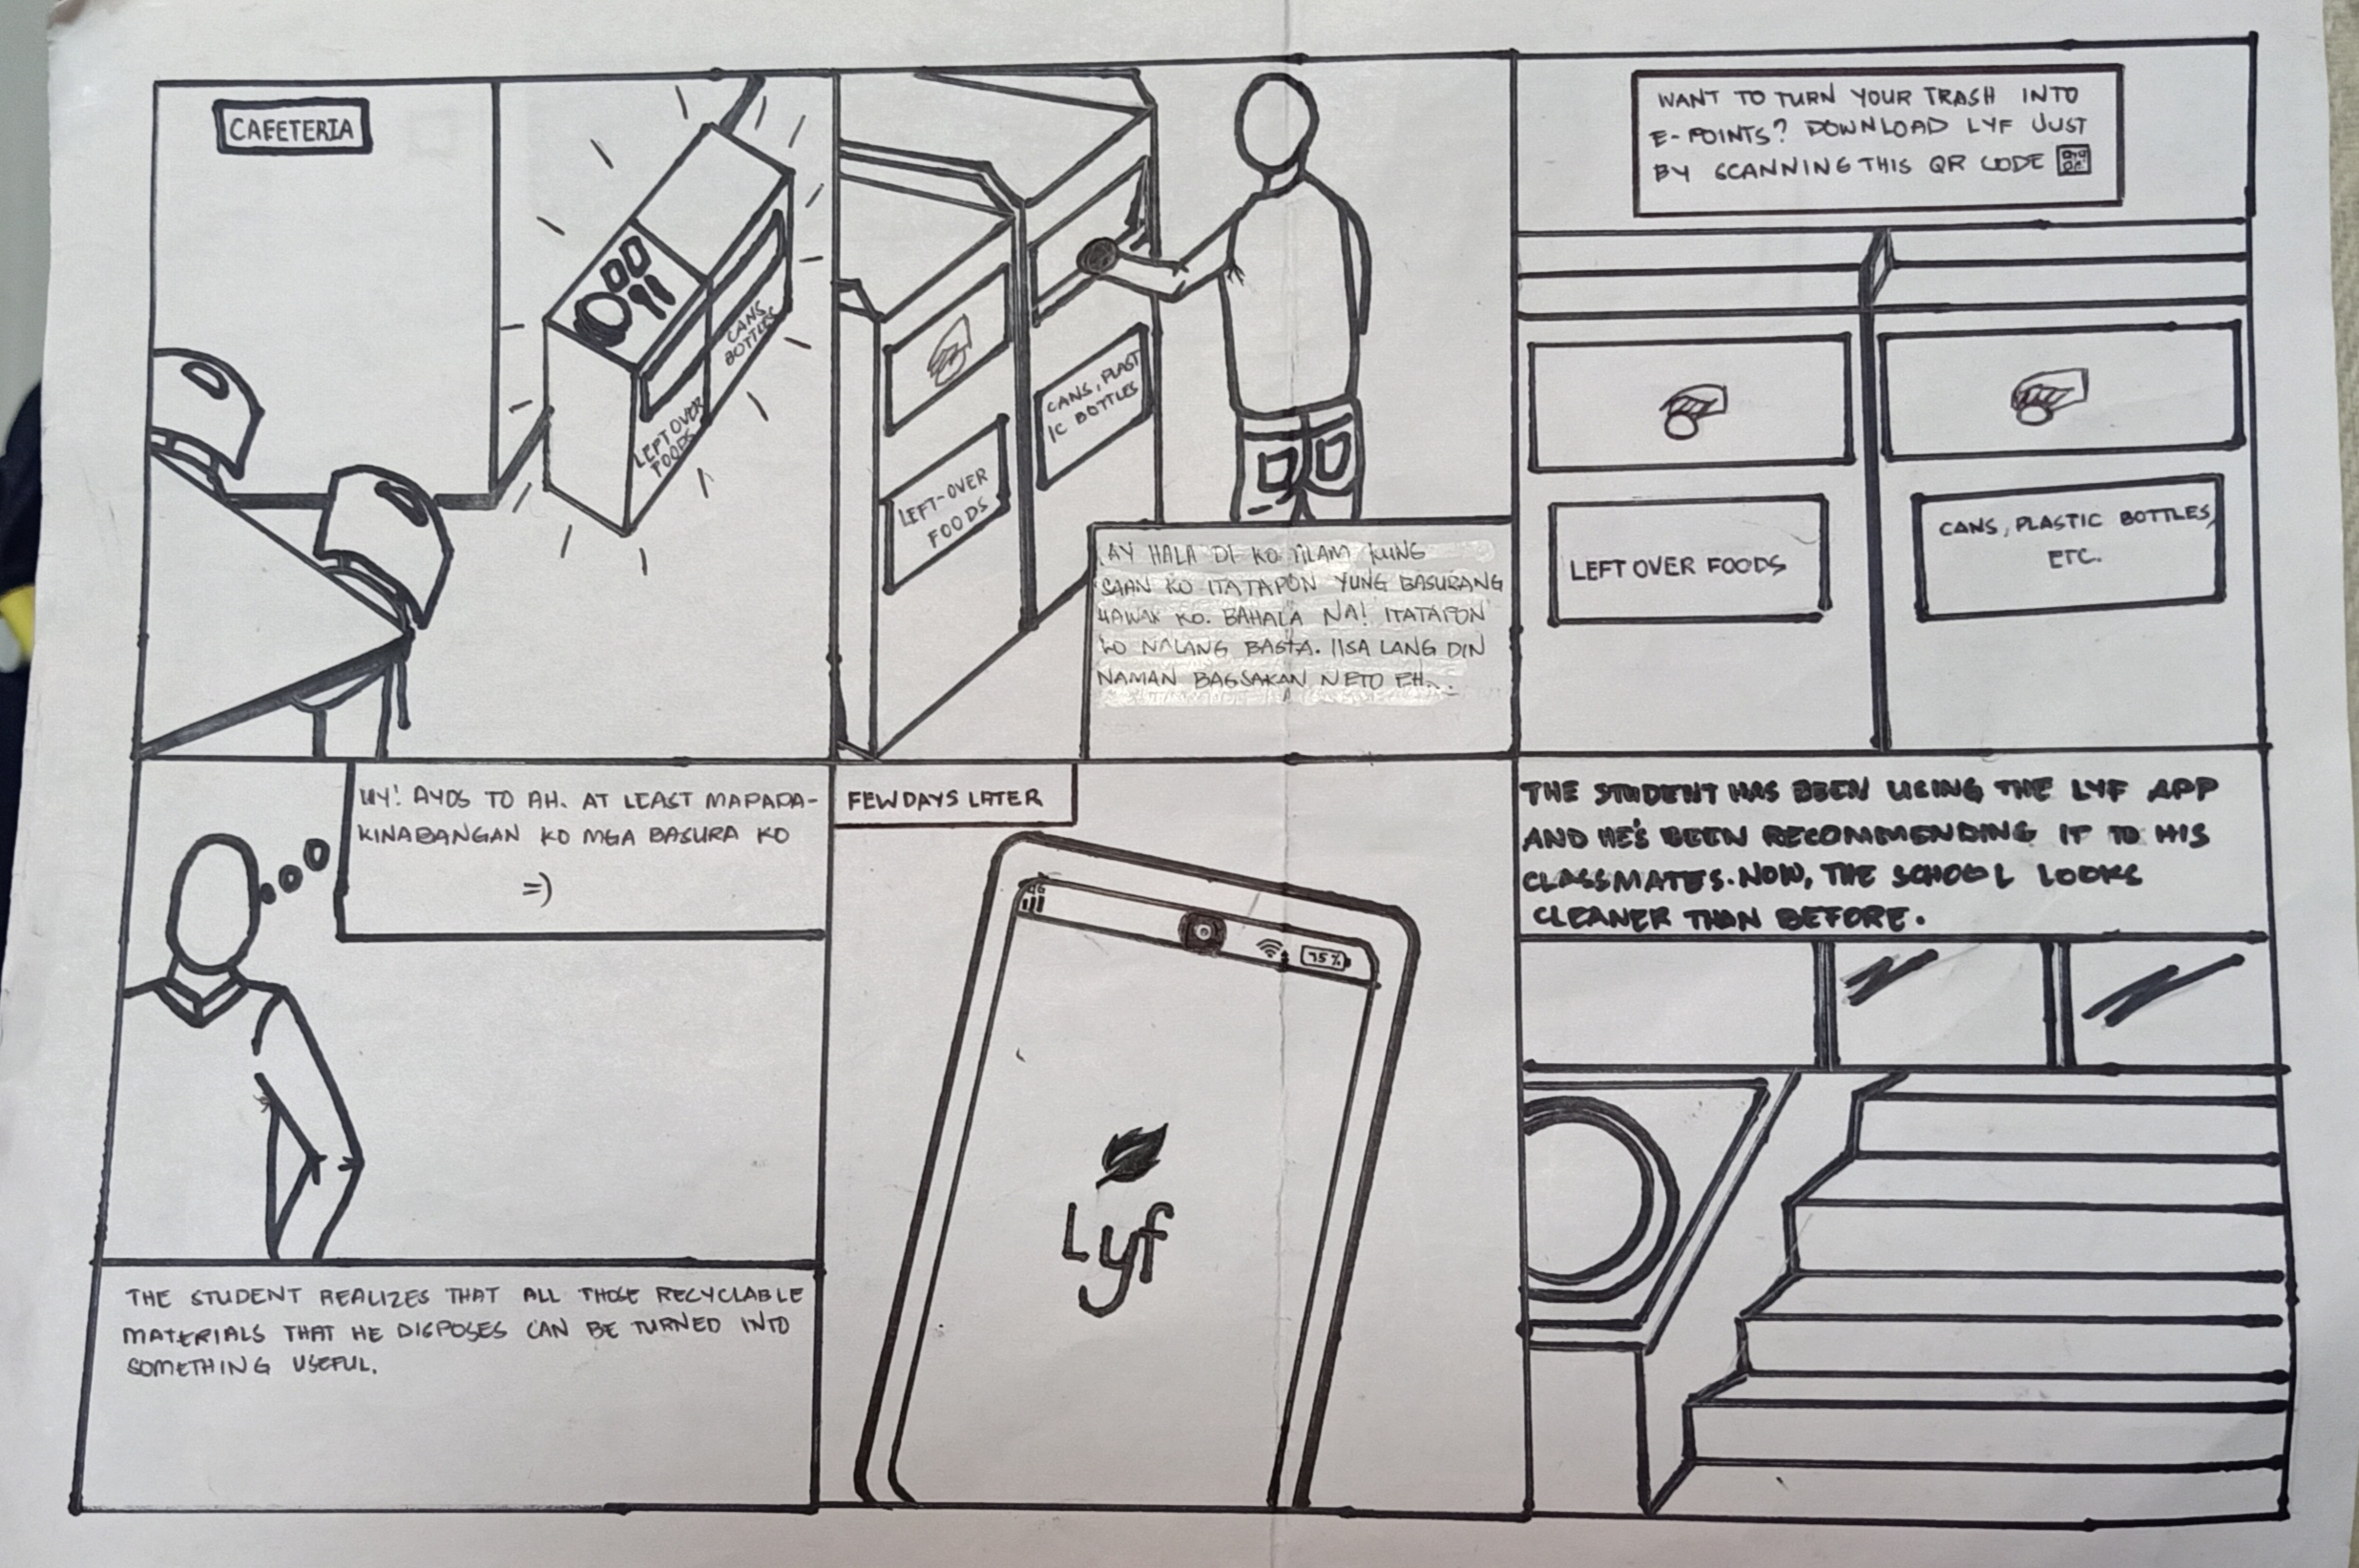 CAFETERIA
CANS
BOTTLES
LEFTOVER
FOODS
CANS, PLAST
IC BOTTLES
LEFT-OVER
FOODS
AY HALA DI KO ALAM KUNG
SAAN KO ITATAPON YUNG BASURANG
HAWAK KO. BAHALA NA! ITATAPON
KO NALANG BASTA. IISA LANG DIN
NAMAN BAGSAKAN NETO EH...
WANT TO TURN YOUR TRASH INTO
E-POINTS? DOWNLOAD LYF JUST
BY SCANNING THIS QR CODE
LEFT OVER FOODS
CANS, PLASTIC BOTTLES,
ETC.
UY! AYOS TO AH. AT LEAST MAPAPA-
KINABANGAN KO MGA BASURA KO
=)
THE STUDENT REALIZES THAT ALL THOSE RECYCLABLE
MATERIALS THAT HE DISPOSES CAN BE TURNED INTO
SOMETHING USEFUL.
FEW DAYS LATER
4G
75%
Lyf
THE STUDENT HAS BEEN USING THE LYF APP
AND HE'S BEEN RECOMMENDING IT TO HIS
CLASSMATES. NOW, THE SCHOOL LOOKS
CLEANER THAN BEFORE.